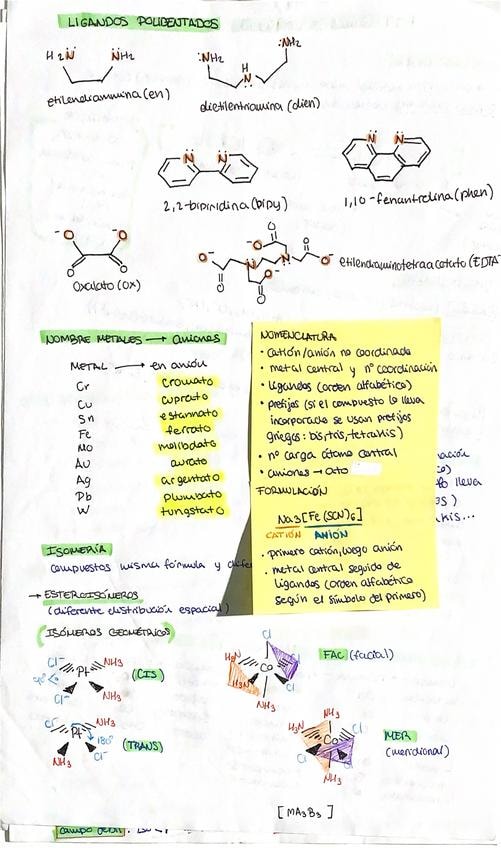 LIGANDOS POLIDENTADOS
H2N: :NH2
etilendiammina (en)
:NH2 H N :NH2
dietilentriamina (dien)
N N
2,2-bipiridina (bipy)
N N
1,10-fenantrolina (phen)
-O O-
O O
Oxalato (ox)
O O
-O N: N: O-
O- O-
O O
etilendiaminotetraacetato (EDTA
NOMBRE METALES → aniones
METAL → en anión
Cr cromato
Cu cuprato
Sn estannato
Fe ferrato
Mo molibdato
Au aurato
Ag argentato
Pb plumbato
W tungstato
NOMENCLATURA
• catión/anión no coordinado
• metal central y nº coordinación
• ligandos (orden alfabético)
• prefijos (si el compuesto lo lleva
incorporado se usan prefijos
griegos: bis, tris, tetrakis)
• nº carga átomo central
• aniones → ato
FORMULACIÓN
Na3[Fe(SCN)6]
CATIÓN ANIÓN
• primero catión, luego anión
• metal central seguido de
ligandos (orden alfabético
según el símbolo del primero)
lleva
)
kis...
ISOMERÍA
compuestos misma fórmula y dife
→ ESTEROISÓMEROS
(diferente distribución espacial)
(ISÓMEROS GEOMÉTRICOS)
Cl- NH3
90° Pt (CIS)
Cl- NH3
Cl- NH3
Pt 180° (TRANS)
NH3 Cl-
Cl
H3N Cl
Co
H3N Cl
NH3
FAC (facial)
NH3
H3N Cl
Co
Cl Cl
NH3
MER
(meridional)
[MA3B3]